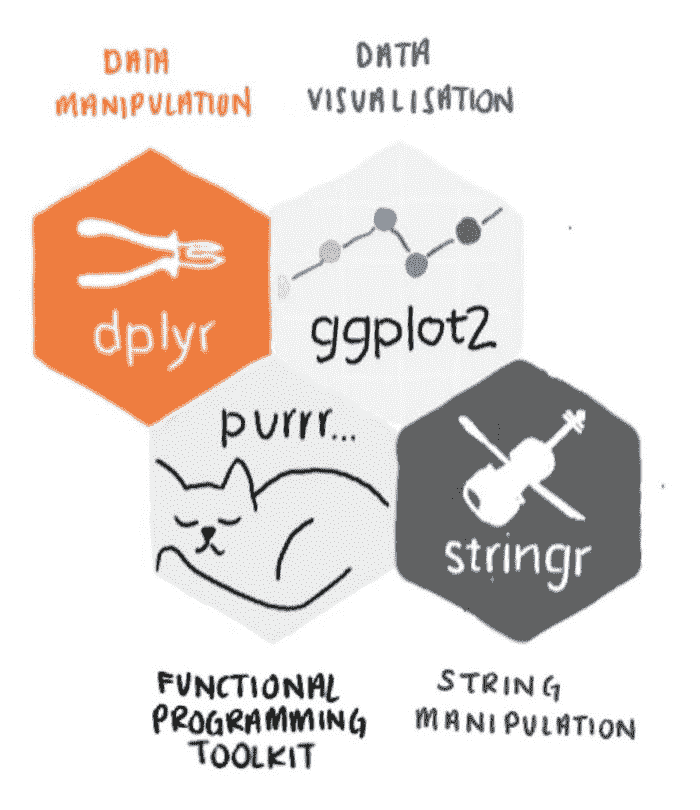 DATA
MANIPULATION
DATA
VISUALISATION
dplyr
ggplot2
purrr...
stringr
FUNCTIONAL
PROGRAMMING
TOOLKIT
STRING
MANIPULATION